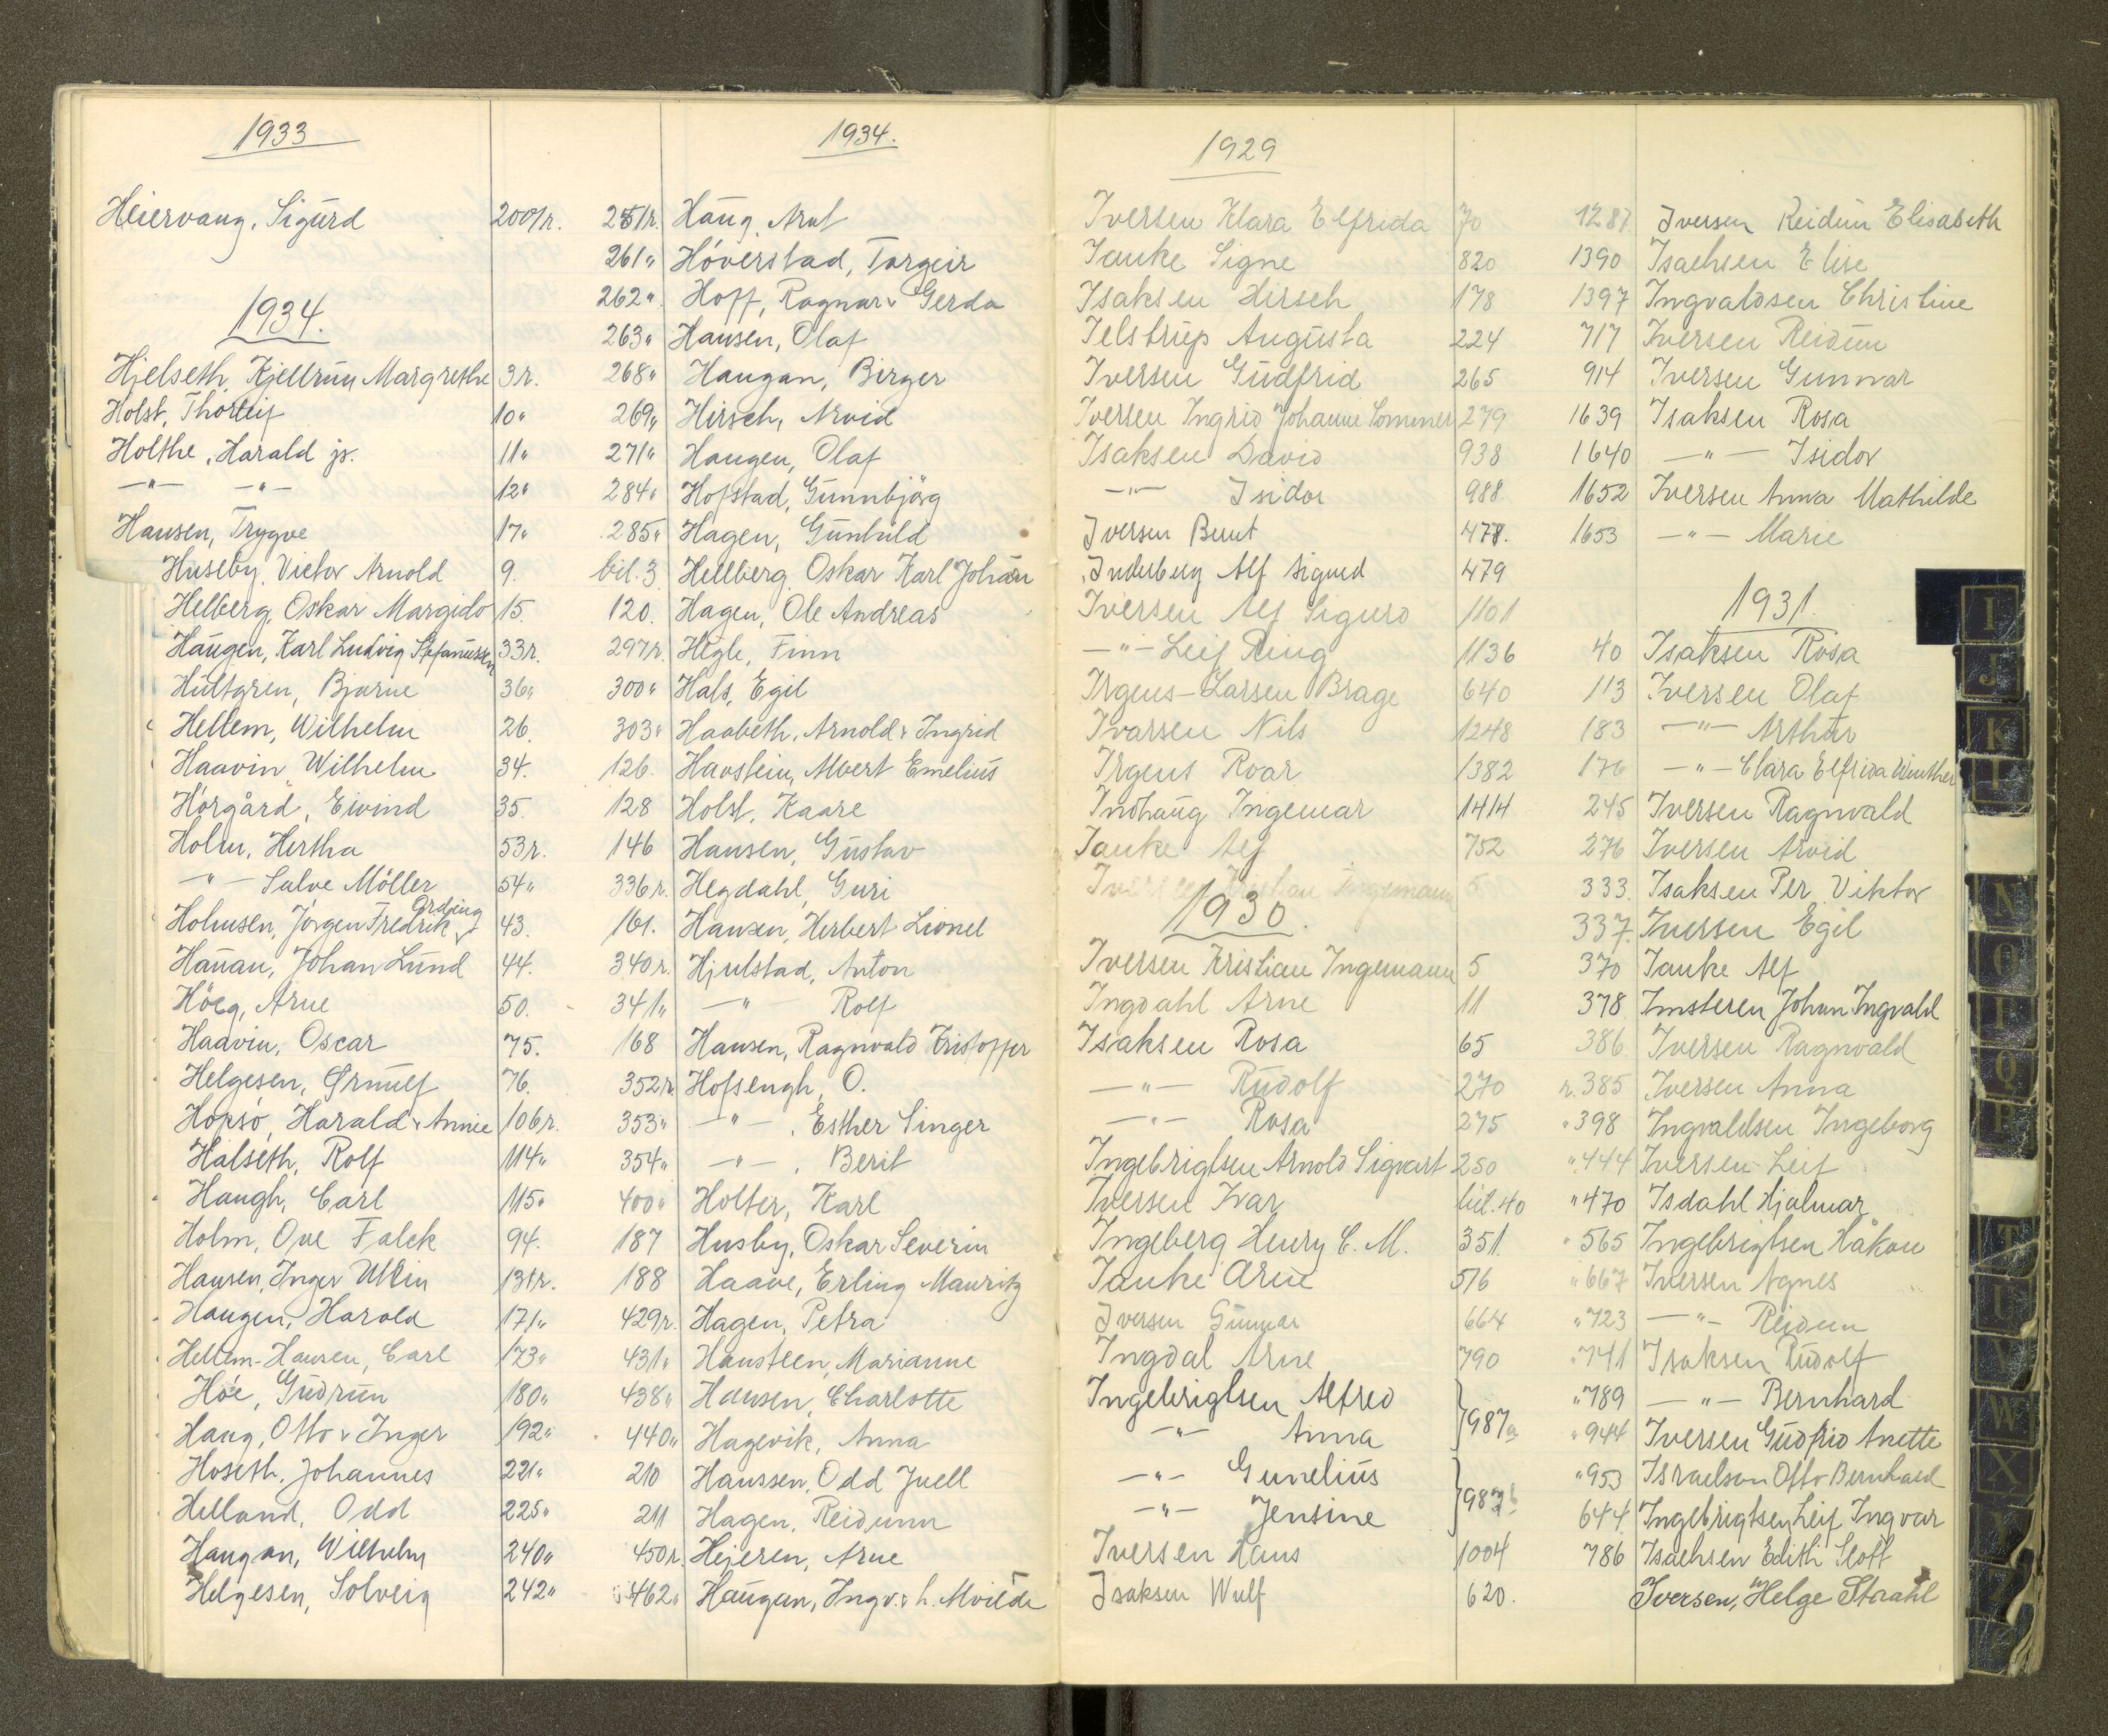 1933
Heiervang, Sigurd 200/r.
1934.
Hjelseth, Kjellrun Margrethe 3r.
Holst, Thorleif 10"
Holthe, Harald jr. 11"
—"— —"— 12"
Hansen, Trygve 17"
Huseby, Victor Arnold 9.
Helberg, Oskar Margido 15.
Haugen, Karl Ludvig Stefanussen 33r.
Hultgren, Bjarne 36"
Hellem, Wilhelm 26.
Haavin, Wilhelm 34.
Hörgård, Eivind 35.
Holm, Hertha 53r.
—"— Salve Möller 54"
Holmsen, Jörgen Fredrik Ording 43.
Hanau, Johan Lund 44.
Höeg, Arne 50.
Haavin, Oscar 75.
Helgesen, Ørnulf 76.
Hopsö, Harald & Annie 106r.
Halseth, Rolf 114"
Haugh, Carl 115"
Holm, Ove Falck 94.
Hansen, Inger 131r.
Haugen, Harald 171"
Hellem-Hansen, Carl 173"
Höe, Gudrun 180"
Haug, Otto & Inger 192"
Hoseth, Johannes 221"
Helland, Odd 225"
Haugan, Wilhelm 240"
Helgesen, Solveig 242"
1934.
251r. Haug, Arnt
261" Höverstad, Torgeir
262" Hoff, Ragnar & Gerda
263" Hansen, Olaf
268" Haugan, Birger
269" Hirsch, Arvid
271" Haugen, Olaf
284" Hofstad, Gunnbjörg
285" Hagen, Gunhild
bil. 3 Hellberg Oskar Karl Johan
120. Hagen, Ole Andreas
297r. Hegle, Finn
300" Hals, Egil
303" Haabeth, Arnold & Ingrid
126. Havstein, Albert Emelius
128 Holst, Kaare
146 Hansen, Gustav
336r. Hegdahl, Guri
161. Hansen, Herbert Lionel
340r. Hjulstad, Anton
341" —"— Rolf
168 Hansen, Ragnvald Kristoffer
352r. Hofsengh, O.
353" —"—, Esther Singer
354" —"—, Berit
400" Holter, Karl
187 Husby, Oskar Severin
188 Haave, Erling Mauritz
429r. Hagen, Petra
431" Hansteen, Marianne
438" Hansen, Charlotte
440" Hagevik, Anna
210 Hanssen, Odd Juell
211 Hagen, Reidunn
450r. Hejeren, Arne
462" Haugan, Ingv. & h. Mvilde
1929
Iversen Klara Elfrida 70
Ianke Signe 820
Isaksen Hirsch 178
Ielstrup Augusta 224
Iversen Gudfrid 265
Iversen Ingrid Johanne Sommer 279
Isaksen David 938
—"— Isidor 988
Iversen Bernt 478.
Inderberg Alf Sigurd 479
Iversen Alf Sigurd 1101
—"— Leif Ring 1136
Irgens-Larsen Brage 640
Ivarsen Nils 1248
Irgens Roar 1382
Indhaug Ingemar 1414
Ianke Alf 752
Iversen Kristian Ingemann 5
1930.
Iversen Kristian Ingemann 5
Ingdahl Arne 11
Isaksen Rosa 65
—"— Rudolf 270
—"— Rosa 275
Ingebrigtsen Arnold Sigvart 250
Iversen Ivar bil. 40
Ingeberg Henry C. M. 351.
Ianke Arne 516
Iversen Gunnar 664
Ingdal Arne 790
Ingebrigtsen Alfred
—"— Anna } 987a
—"— Gunelius
—"— Jensine } 987b
Iversen Hans 1004
Isaksen Wulf 620.
1287 Iversen Reidun Elisabeth
1390 Isachsen Elise
1397 Ingvaldsen Christine
717 Iversen Reidun
914 Iversen Gunnar
1639 Isaksen Rosa
1640 —"— Isidor
1652 Iversen Anna Mathilde
1653 —"— Marie
1931.
40 Isaksen Rosa
113 Iversen Olaf
183 —"— Arthur
176 —"— Clara Elfrida Winther
245 Iversen Ragnvald
276 Iversen Arvid
333. Isaksen Per Viktor
337. Iversen Egil
370 Ianke Alf
378 Imsteren Johan Ingvald
386 Iversen Ragnvald
r. 385 Iversen Anna
" 398 Ingvaldsen Ingeborg
" 444 Iversen Leif
" 470 Isdahl Hjalmar
" 565 Ingebrigtsen Håkon
" 667 Iversen Agnes
" 723 —"— Reidun
" 741 Isaksen Rudolf
" 789 —"— Bernhard
" 944 Iversen Gudfrid Anette
" 953 Israelson Otto Bernhard
644. Ingebrigtsen Leif Ingvar
786 Isachsen Edith Slott
Iversen, Helge Staahl
I
J
K
L
N
O
P
Q
P
T
U
V
W
X
Y
Z